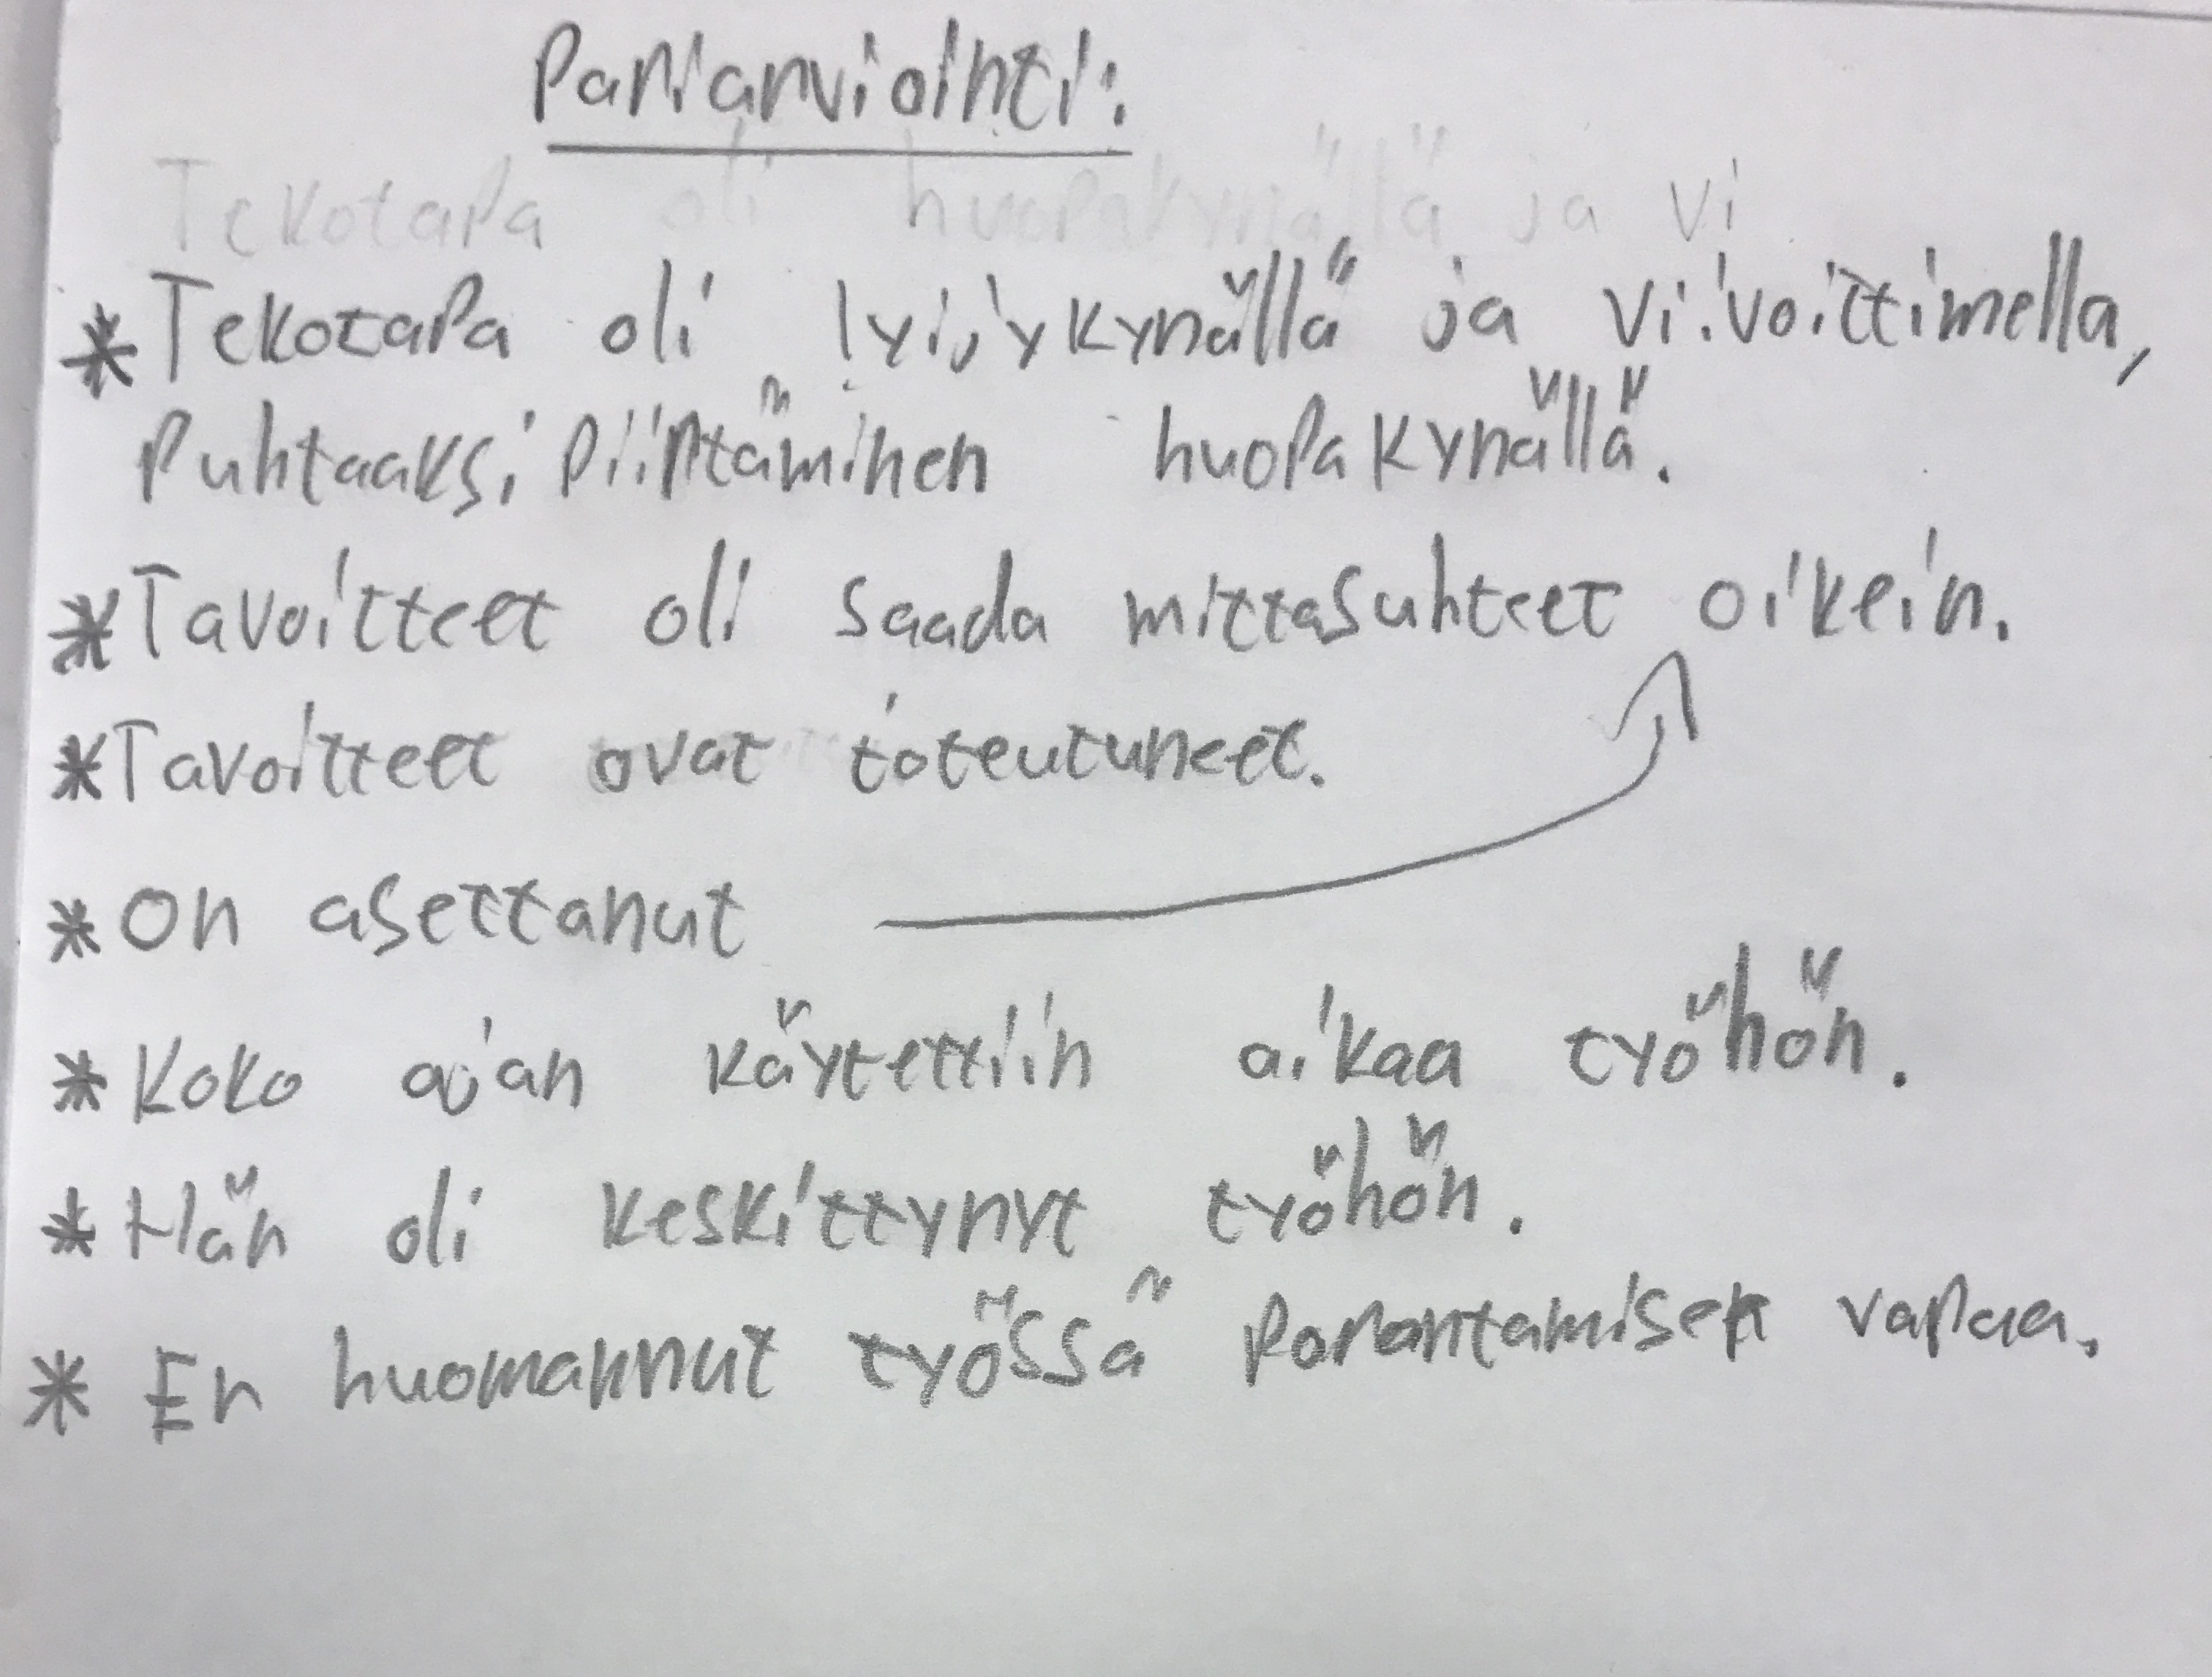 Pariarviointi:
Tekotapa oli huopakynällä ja vi
* Tekotapa oli lyijykynällä ja viivoittimella,
Puhtaaksi piirtäminen huopakynällä.
* Tavoitteet oli saada mittasuhteet oikein.
* Tavoitteet ovat toteutuneet.
* On asettanut
* Koko ajan käytettiin aikaa työhön.
* Hän oli keskittynyt työhön.
* En huomannut työssä parantamisen varaa.